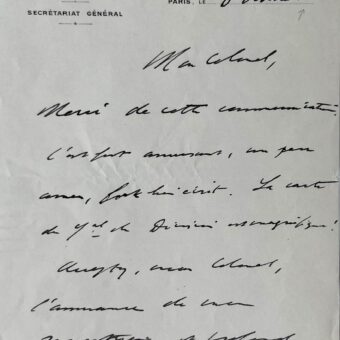 SECRÉTARIAT GÉNÉRAL
PARIS, LE
Mon Colonel,
Merci de cette communication.
C'est fort amusant, un peu
amer, fort bien écrit. La carte
du Gal de Division est magnifique!
Agréez, mon Colonel,
l'assurance de mon